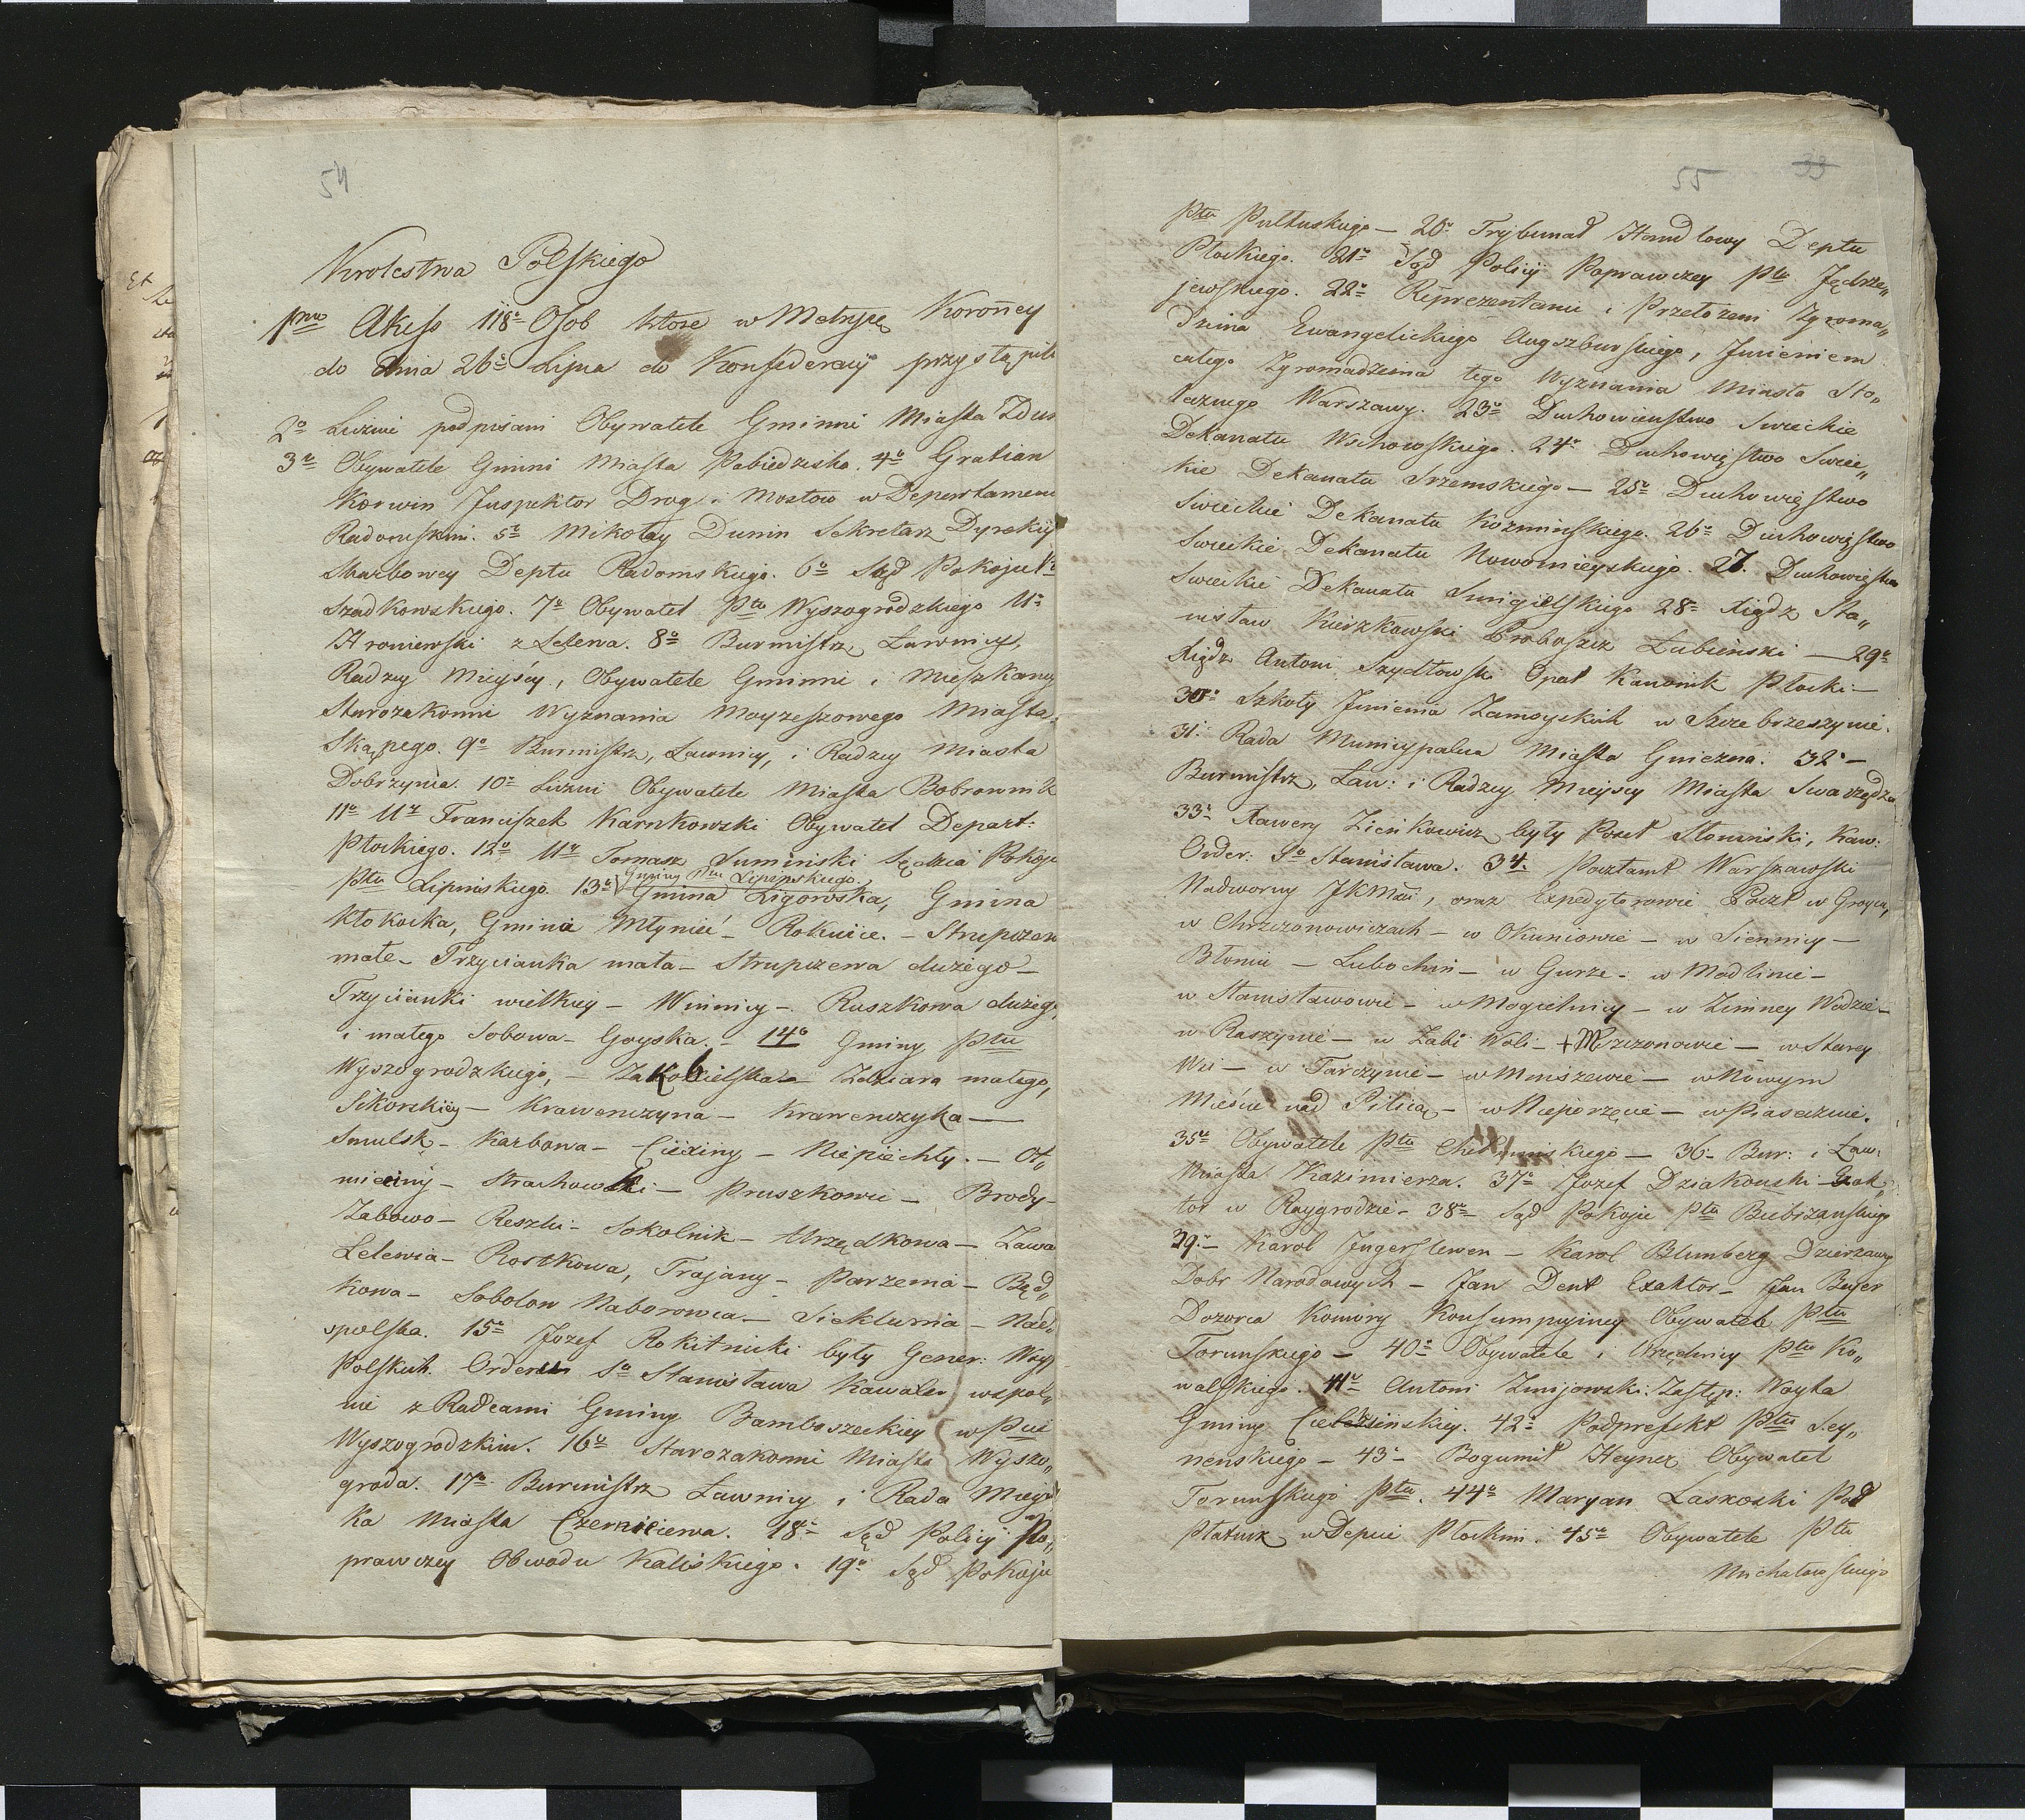 54
Krolestwa Polskiego
pmo Akess 118º Osob ktore w Metryce Koronney
do dnia 26º Lipca do Konfederacyi przystąpili
2º Liczni podpisani Obywatele Gminni Miasta
3º Obywatele Gminni Miasta Pobiedziska. 4º Gratian
Korwin Inspektor Drog i Mostow w Departamen
Radomskim. 5º Mikołay Dunin Sekretarz Dyrekcyi
Skarbowey Deptu Radomskiego. 6º Sąd Pokoju
Szadkowskiego. 7º Obywatel Ptu Wyszogrodzkiego Ur
Hroniewski z Lelewa. 8º Burmistrz, Ławnicy,
Radzcy Mieyscy, Obywatele Gminni i Mieszkancy
Starozakonni Wyznania Moyzeszowego Miasta
Skąpego. 9º Burmistrz, Ławnicy, i Radzcy Miasta
Dobrzynia. 10º Liczni Obywatele Miasta Bobrownik
11º Ur Franciszek Karnkowski Obywatel Depart:
Płockiego. 12º Ur Tomasz Sumiński Sędzia Pokoju
Gminy Ptu Lipinskiego.
Ptu Lipinskiego 13º Gmina Ligowska, Gmina
Kłokocka, Gmina Młynieć – Rokicie. – Strupczewo
małe – Trzcianka mała – Strupczewa dużego –
Trzcianki wielkiey – Winnicy – Ruszkowa dużego
i małego Sobowa – Goyska. – 14º Gminy Ptu
Wyszogrodzkiego, – Zakobielska – Zdziara małego,
Sikorskiey – Krawenczyna – Krawenczyka –
Smulsk – Karbowa – Ciećiny – Niepiechty. – Ot„
mieiny – Strachowski – Pruszkowie – Brody –
Zabowo – Reszki – Sokolnik – Urzędkowa – Zawa
Lelewia – Rostkowa, Trojany – Parzemia – Będ„
kowa – Sobolow Naborowca – Sieklunia – Nad„
opolska. 15º Jozef Rokitnicki były Gener: Woysk
Polskich Orderu So Stanisława Kawaler wspol„
nie z Radcami Gminy Bamboszeckiey w Pcie
Wyszogrodzkim. 16º Starozakonni Miasta Wyszo„
groda. 17º Burmistrz Ławnicy i Rada Mieys
ka Miasta Czerniewa. 18º Sąd Policyi Po„
prawczey Obwodu Kaliskiego. 19º Sąd Pokoju
55 33
Ptu Pułtuskiego – 20º Trybunał Handlowy Deptu
Płockiego. 21º Sąd Policyi Poprawczey Ptu Jędrze„
jewskiego. 22º Reprezentanci i Przełożeni Zgroma„
dzenia Ewangelickiego Augszburskiego, Imieniem
całego Zgromadzenia tego Wyznania Miasta Sto„
łecznego Warszawy. 23º Duchowieństwo Swieckie
Dekanatu Wschowskiego. 24º Duchowięstwo Swiec„
kie Dekanatu Srzemskiego – 25º Duchowięstwo
Swieckie Dekanatu Kozminskiego. 26º Duchowięstwo
Swieckie Dekanatu Nowomieyskiego. 27. Duchowięstwo
Swieckie Dekanatu Smigielskiego 28º Xiądz Sta„
nisław Kierzkowski Proboszcz Łubieński – 29º
Xiądz Antoni Szydłowski Opat Kanonik Płocki –
30º Szkoły Imienia Zamoyskich w Szczebrzeszynie.
31. Rada Municypalna Miasta Gniezna. 32º –
Burmistrz, Ław: i Radzcy Mieyscy Miasta Swarzędza
33º Xawery Zieńkowicz były Poseł Słonimski, Kaw:
Order: So Stanisława. 34. Pocztamt Warszawski
Nadworny JKMci, oraz Expedytorowie Poczt w Groycu,
w Chrzczonowiczach – w Okuniowie – w Siennicy –
Błoniu – Lubochni – w Gurze – w Modlinie –
w Stanisławowie – w Mogielnicy – w Zimney Wodzie –
w Raszynie – w Żabi Woli – + Mszczonowie – w Starey
Wsi – w Tarczynie – w Mniszewie – w Nowym
Mieście nad Pilicą – w Nieporzęcie – w Piasecznie.
35º Obywatele Ptu Chełminskiego – 36º Bur: i Ław:
Miasta Kazimierza. 37º Jozef Dziakowski Exak„
tor w Raygrodzie – 38º Sąd Pokoju Ptu Biebrzanskiego
39. – Karol Ingersleven – Karol Blumberg Dzierzawcy
Dobr Narodowych – Jan Dent Exaktor – Jan Beyer
Dozorca Komory Konsumpcyiney Obywatele Ptu
Torunskiego – 40º Obywatele i Urzędnicy Ptu Ko„
walskiego. 41º Antoni Zmijowski. Zastęp: Woyta
Gminy Ciebrzinskiey. 42º Podprefekt Ptu Sey„
nenskiego – 43º Bogumił Heyner Obywatel
Torunskiego Ptu. 44º Maryan Laskoski Pod
Płatnik w Depcie Płockim. 45º Obywatele Ptu
Michałowskiego